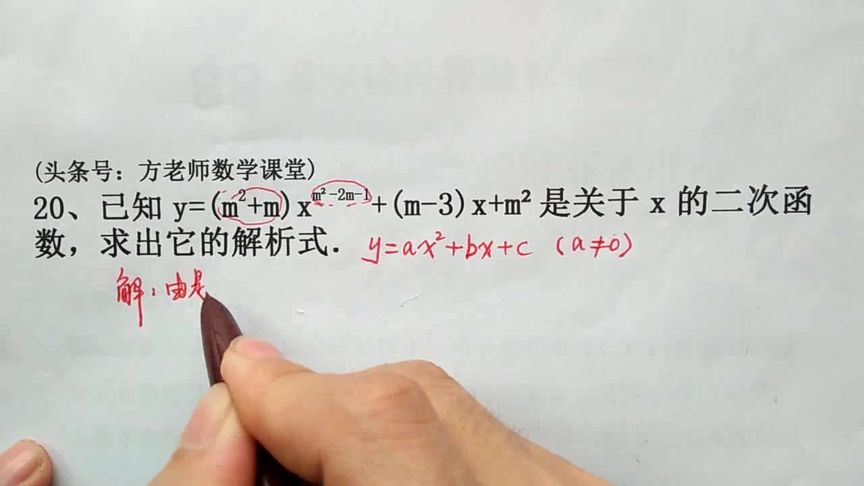 (头条号：方老师数学课堂)
20、已知 y=(m²+m)x^{m²-2m-1}+(m-3)x+m² 是关于 x 的二次函
数，求出它的解析式． y=ax²+bx+c (a≠0)
解：由